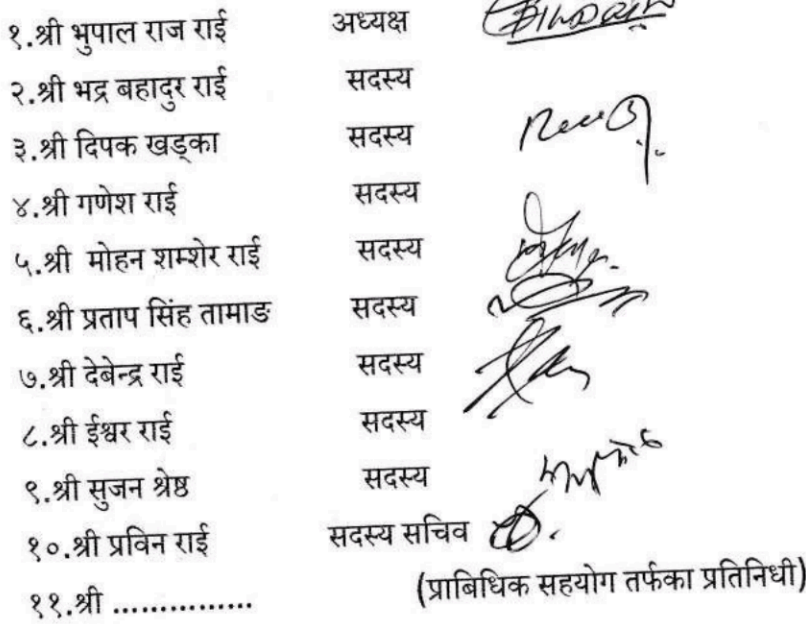 १.श्री भुपाल राज राई अध्यक्ष
२.श्री भद्र बहादुर राई सदस्य
३.श्री दिपक खड्का सदस्य
४.श्री गणेश राई सदस्य
५.श्री मोहन शम्शेर राई सदस्य
६.श्री प्रताप सिंह तामाङ सदस्य
७.श्री देबेन्द्र राई सदस्य
८.श्री ईश्वर राई सदस्य
९.श्री सुजन श्रेष्ठ सदस्य
१०.श्री प्रविन राई सदस्य सचिव
११.श्री ............... (प्राबिधिक सहयोग तर्फका प्रतिनिधी)